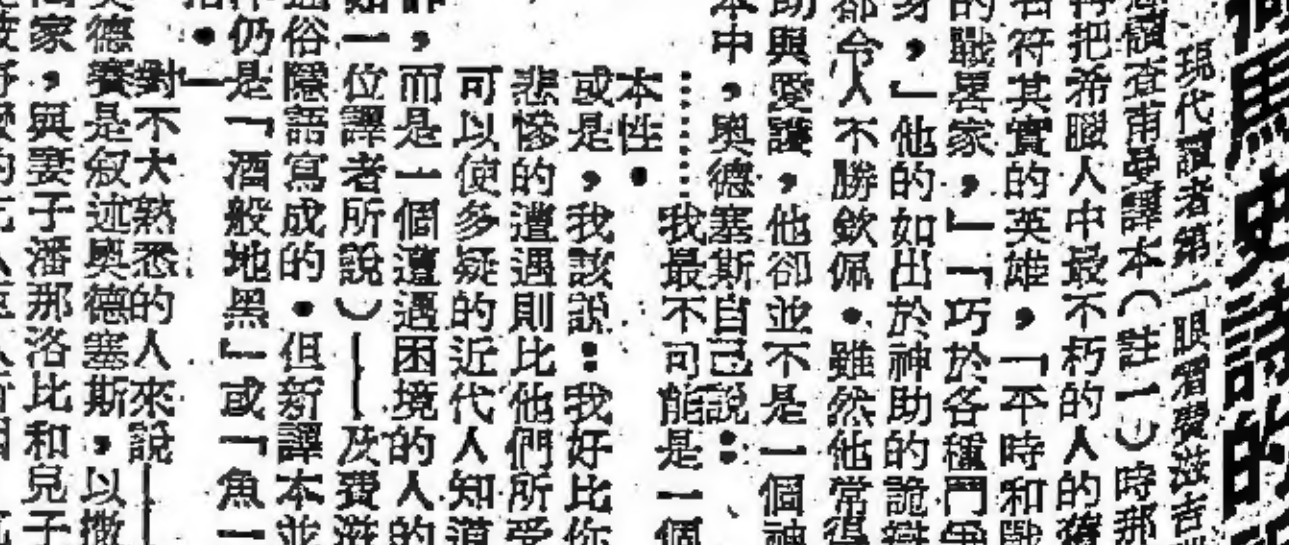 馬史詩的
現代讀者第一眼看費滋吉
查甫曼譯本（註一）時那
再把希臘人中最不朽的人的
名符其實的英雄，「平時和戰
的戰畧家，」「巧於各種鬥爭
身，」他的如出於神助的詭辯
都令人不勝欽佩・雖然他常得
助與愛護，他卻並不是一個神
本中，奧德塞斯自己說：
……我最不可能是一個
本性・
或是，我該說：我好比你
悲慘的遭遇則比他們所受
可以使多疑的近代人知道
，而是一個遭遇困境的人的
如一位譯者所說）——及費滋
通俗隱語寫成的・但新譯本並
仍是「酒般地黑」或「魚一
・」
對不大熟悉的人來說——
奧德賽是叙述奧德塞斯，以撒
家，與妻子潘那洛比和兒子